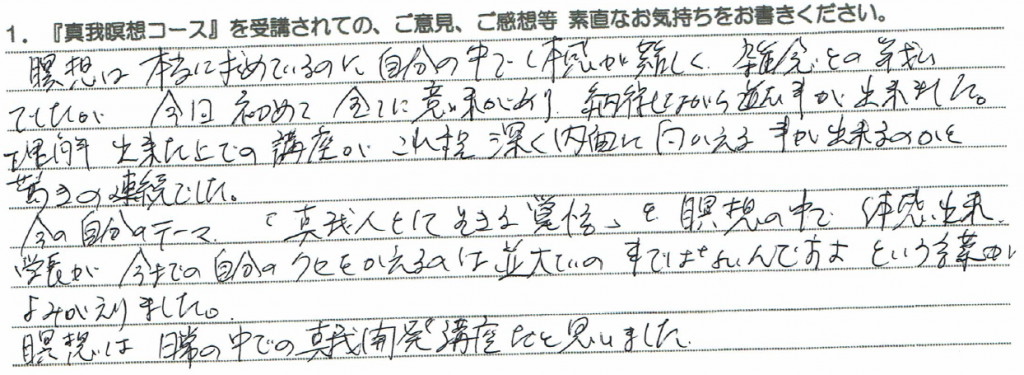 1. 『真我瞑想コース』を受講されての、ご意見、ご感想等 素直なお気持ちをお書きください。
瞑想は 本当に求めているのに 自分の中で 体感が難しく 雑念との
でしたが 今回 初めて 全てに意味があり 納得しながら 進む事が 出来ました。
理解 出来た上での 講座が これ程 深く内面に 向かえる 事が 出来るのかと
驚きの連続でした。
今の自分のテーマ 「真我人として生きる覚悟」を 瞑想の中で 体感出来
学長が 今までの 自分の クセをかえるのは 並大ていの 事ではないんですよ という言葉が
よみがえりました。
瞑想は 日常の中での 真我開発講座だと思いました